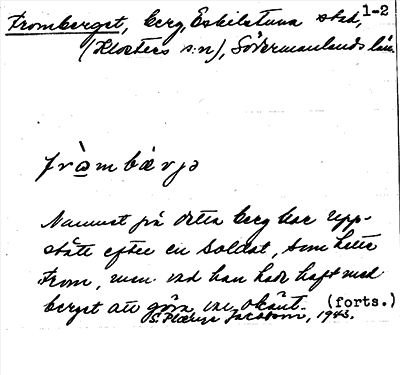 1-2
Fromberget, berg, Eskilstuna stad,
(Klosters s:n), Södermanlands län.
fròmbærjə
Namnet på detta berg har upp-
stått efter en soldat, som hette
From, men vad han hade haft med
berget att göra var okänt. (forts.)
S. Jacobson, 1943.